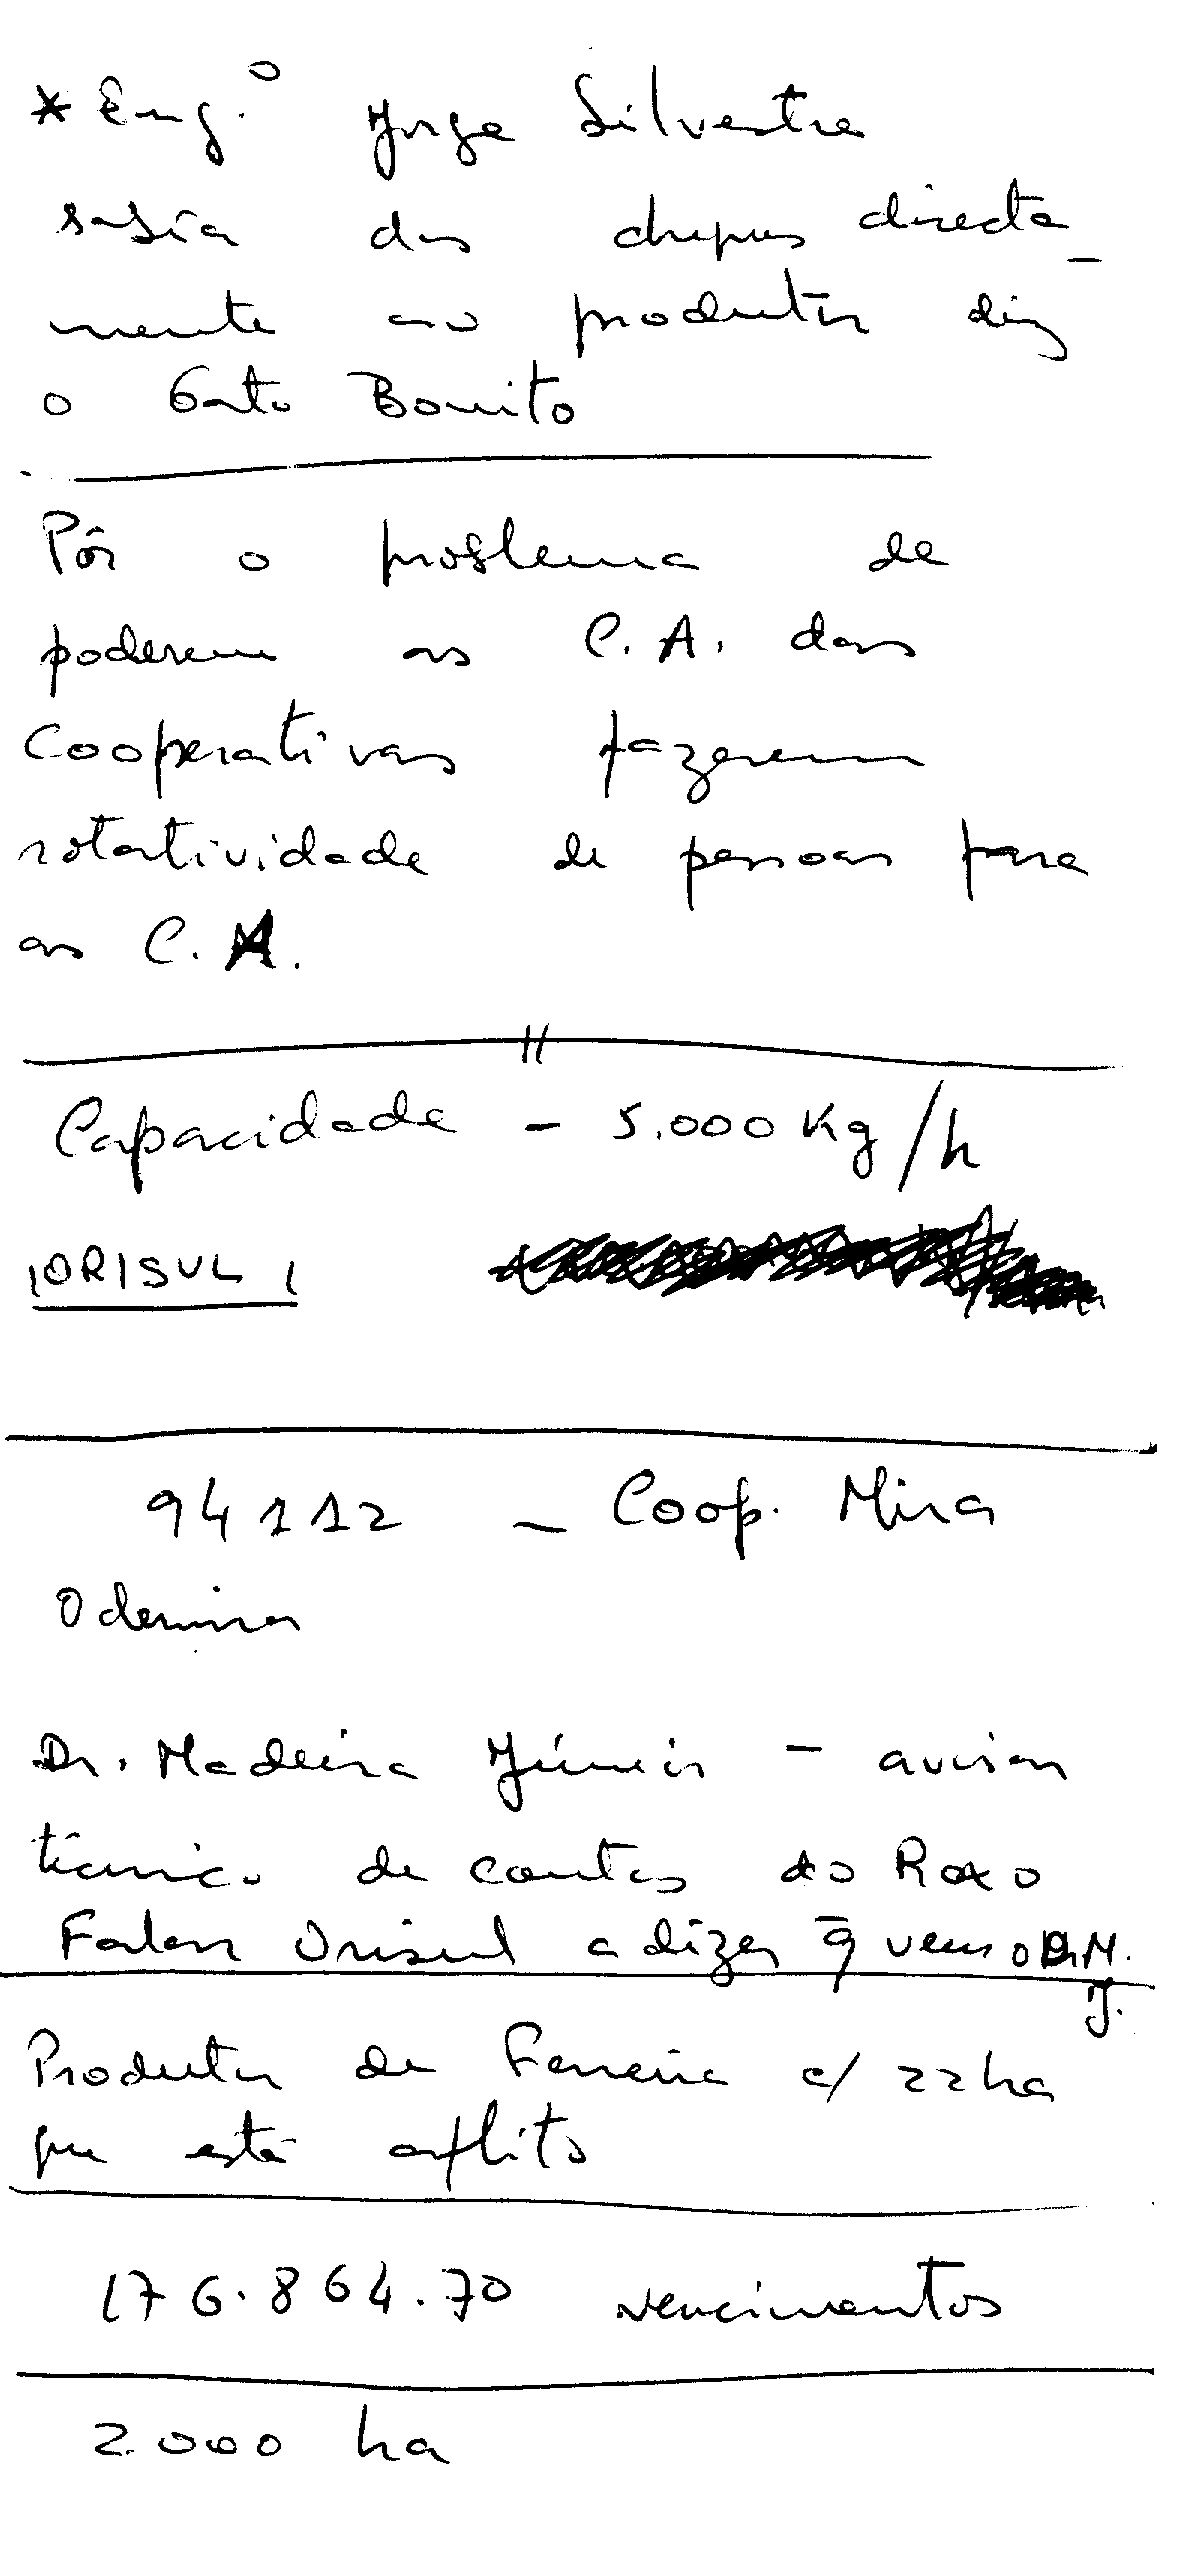 * Eng.º Jorge Silvestre
sabia dos cheques directa_
mente ao produtor diz
o Gato Bonito
Pôr o problema de
poderem as C.A. das
Cooperativas fazerem
rotatividade de pessoas para
as C.A.
Capacidade - 5.000 Kg/h
ORISUL
94112 - Coop. Mira
Odemira
Dr. Madeira Júnior - avisar
técnico de contas do Roxo
Falar Orisul a dizer q̄ vem o Dr. M.
J.
Produtor de Ferreira c/ 22 ha
que está aflito
176.864.70 vencimentos
2.000 ha